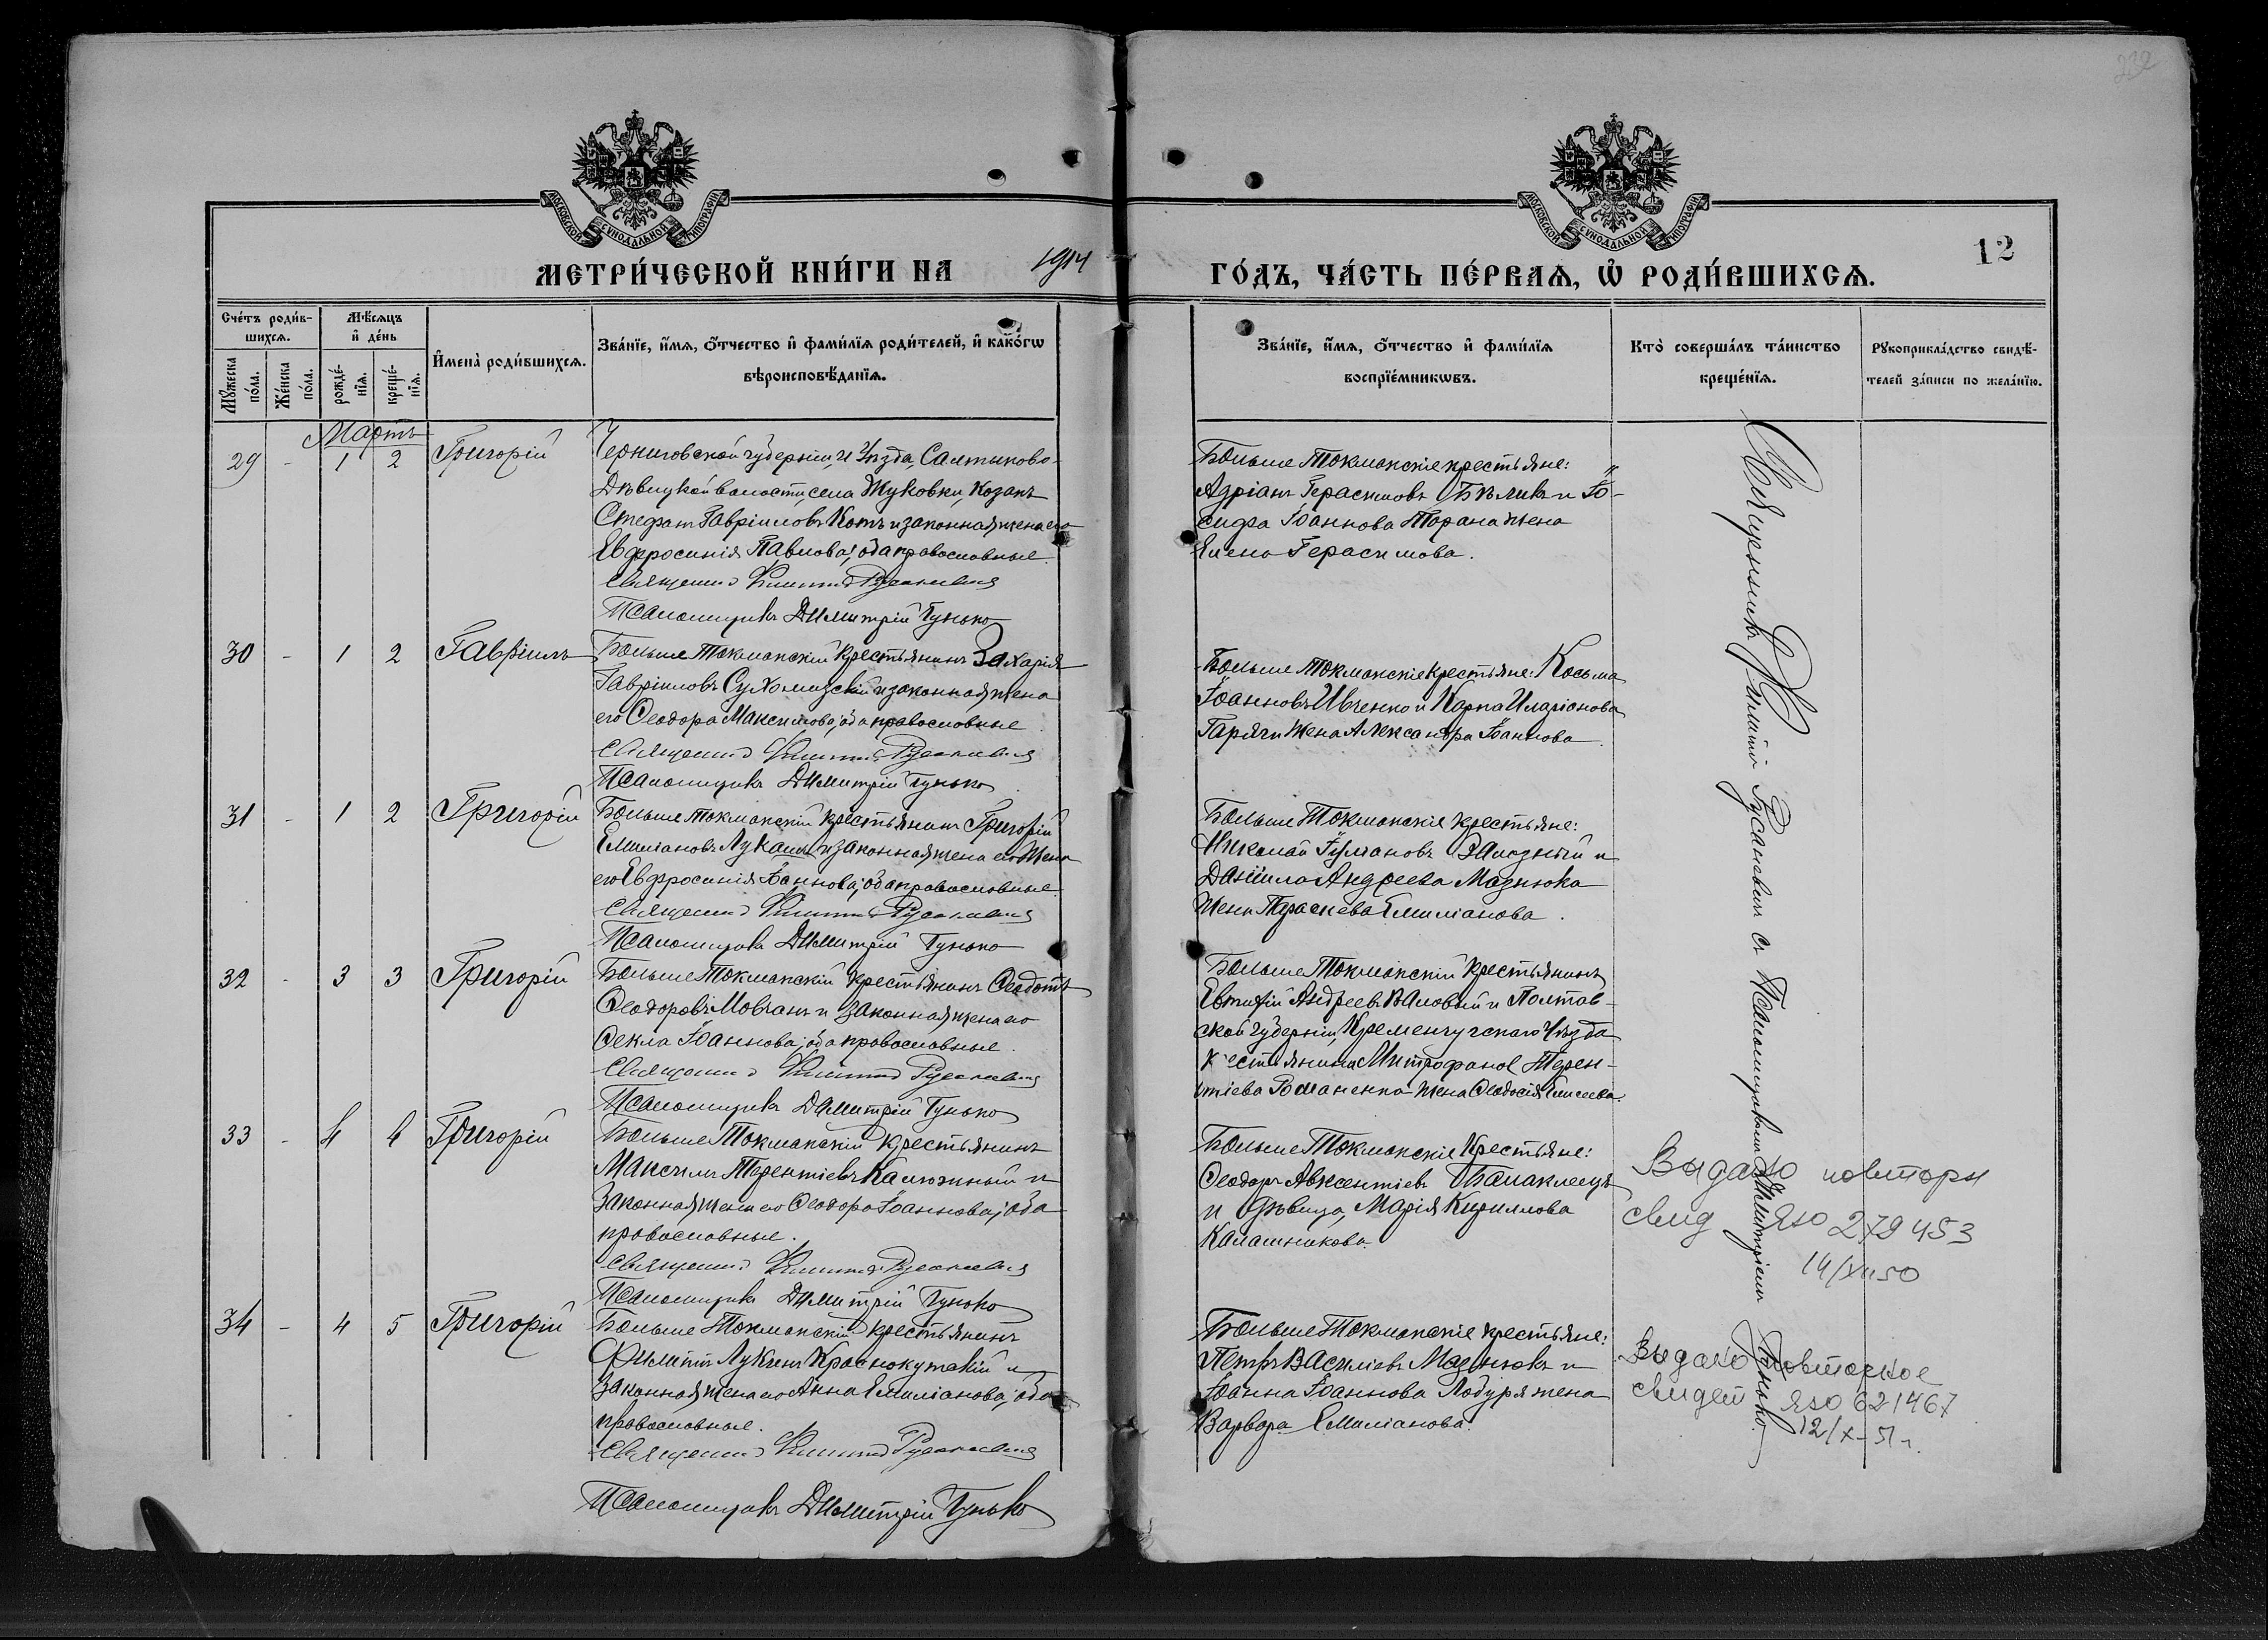 232
МОСКОВСКОЙ СѴНОДАЛЬНОЙ ТИПОГРАФІИ
МОСКОВСКОЙ СѴНОДАЛЬНОЙ ТИПОГРАФІИ
12
МЕТРИ́ЧЕСКОЙ КНИ́ГИ НА 1914 ГО́ДЪ, ЧА́СТЬ ПЕ́РВАѦ, Ѡ҆ РОДИ́ВШИХСѦ.
Сче́тъ роди́в-
шихсѧ.
Мꙋ́жеска по́ла.
Же́нска по́ла.
Мѣ́сѧцъ
и҆ де́нь
рожде́-
нїѧ.
креще́-
нїѧ.
И҆мена̀ роди́вшихсѧ.
Зва́нїе, и҆́мѧ, ѻ҆́тчество и҆ фами́лїѧ роди́телей, и҆ како́гѡ
вѣроисповѣ́данїѧ.
Зва́нїе, и҆́мѧ, ѻ҆́тчество и҆ фами́лїѧ
воспрїе́мникѡвъ.
Кто̀ соверша́лъ та́инство
креще́нїѧ.
Рꙋкоприкла́дство свидѣ́-
телей за́писи по жела́нїю.
Мартъ
29 - 1 2 Григорій
Черниговской губерніи, и Уѣзда, Салтыково-
Дѣвицкой волости, села Жуковки, козакъ
Стефанъ Гавріиловъ Котъ и законная жена его
Евфросинія Павлова, оба православные.
Священникъ Филиппъ Русаневичъ
Псаломщикъ Димитрій Гунько
Больше Токмакскіе крестьяне:
Адріанъ Герасимовъ Бѣликъ и Іо-
сифа Іоаннова Тарана жена
Елена Герасимова.
30 - 1 2 Гавріилъ
Больше Токмакскій крестьянинъ Захарія
Гавріиловъ Сухомизскій и законная жена
его Ѳеодора Максимова, оба православные
Священникъ Филиппъ Русаневичъ
Псаломщикъ Димитрій Гунько
Больше Токмакскіе крестьяне: Косьма
Іоанновъ Ивченко и Карпа Иларіонова
Гарячи жена Александра Іоаннова.
31 - 1 2 Григорій
Больше Токмакскій крестьянинъ Григорій
Емиліановъ Лукаш и законная жена его жена
его Евфросинія Іоаннова, оба православные
Священникъ Филиппъ Русаневичъ
Псаломщикъ Димитрій Гунько
Больше Токмакскіе крестьяне:
Николай Іуліановъ Зализный и
Даніила Андреева Мазнюка
жена Параскева Емиліанова.
32 - 3 3 Григорій
Больше Токмакскій крестьянинъ Ѳеодотъ
Ѳеодоровъ Мовчанъ и законная жена его
Ѳекла Іоаннова, оба православные.
Священникъ Филиппъ Русаневичъ
Псаломщикъ Димитрій Гунько
Больше Токмакскій крестьянинъ
Евтихій Андреевъ Валовый и Полтав-
ской губерніи, Кременчугскаго Уѣзда
крестьянина Митрофана Терен-
тіева Романенка жена Ѳеодосія Елисеева.
33 - 4 4 Григорій
Больше Токмакскій крестьянинъ
Максимъ Терентіевъ Калюжный и
законная жена его Ѳеодора Іоаннова, оба
православные.
Священникъ Филиппъ Русаневичъ
Псаломщикъ Димитрій Гунько
Больше Токмакскіе крестьяне:
Ѳеодоръ Авксентіевъ Балаклеецъ
и дѣвица, Марія Кириллова
Калашникова.
Выдано повторн
свид ЯЮ 279453
14/XII 50
34 - 4 5 Григорій
Больше Токмакскій крестьянинъ
Филиппъ Лукинъ Краснокутскій и
законная жена его Анна Емиліанова, оба
православные.
Священникъ Филиппъ Русаневичъ
Псаломщикъ Димитрій Гунько
Больше Токмакскіе крестьяне:
Петръ Василіевъ Мазнюкъ и
Іоанна Іоаннова Лобуря жена
Варвара Емиліанова.
Выдано повторное
свидет ЯЮ 621467
12/X-51 г.
Священникъ Филиппъ Русаневичъ съ Псаломщикомъ Димитріемъ Гунько.